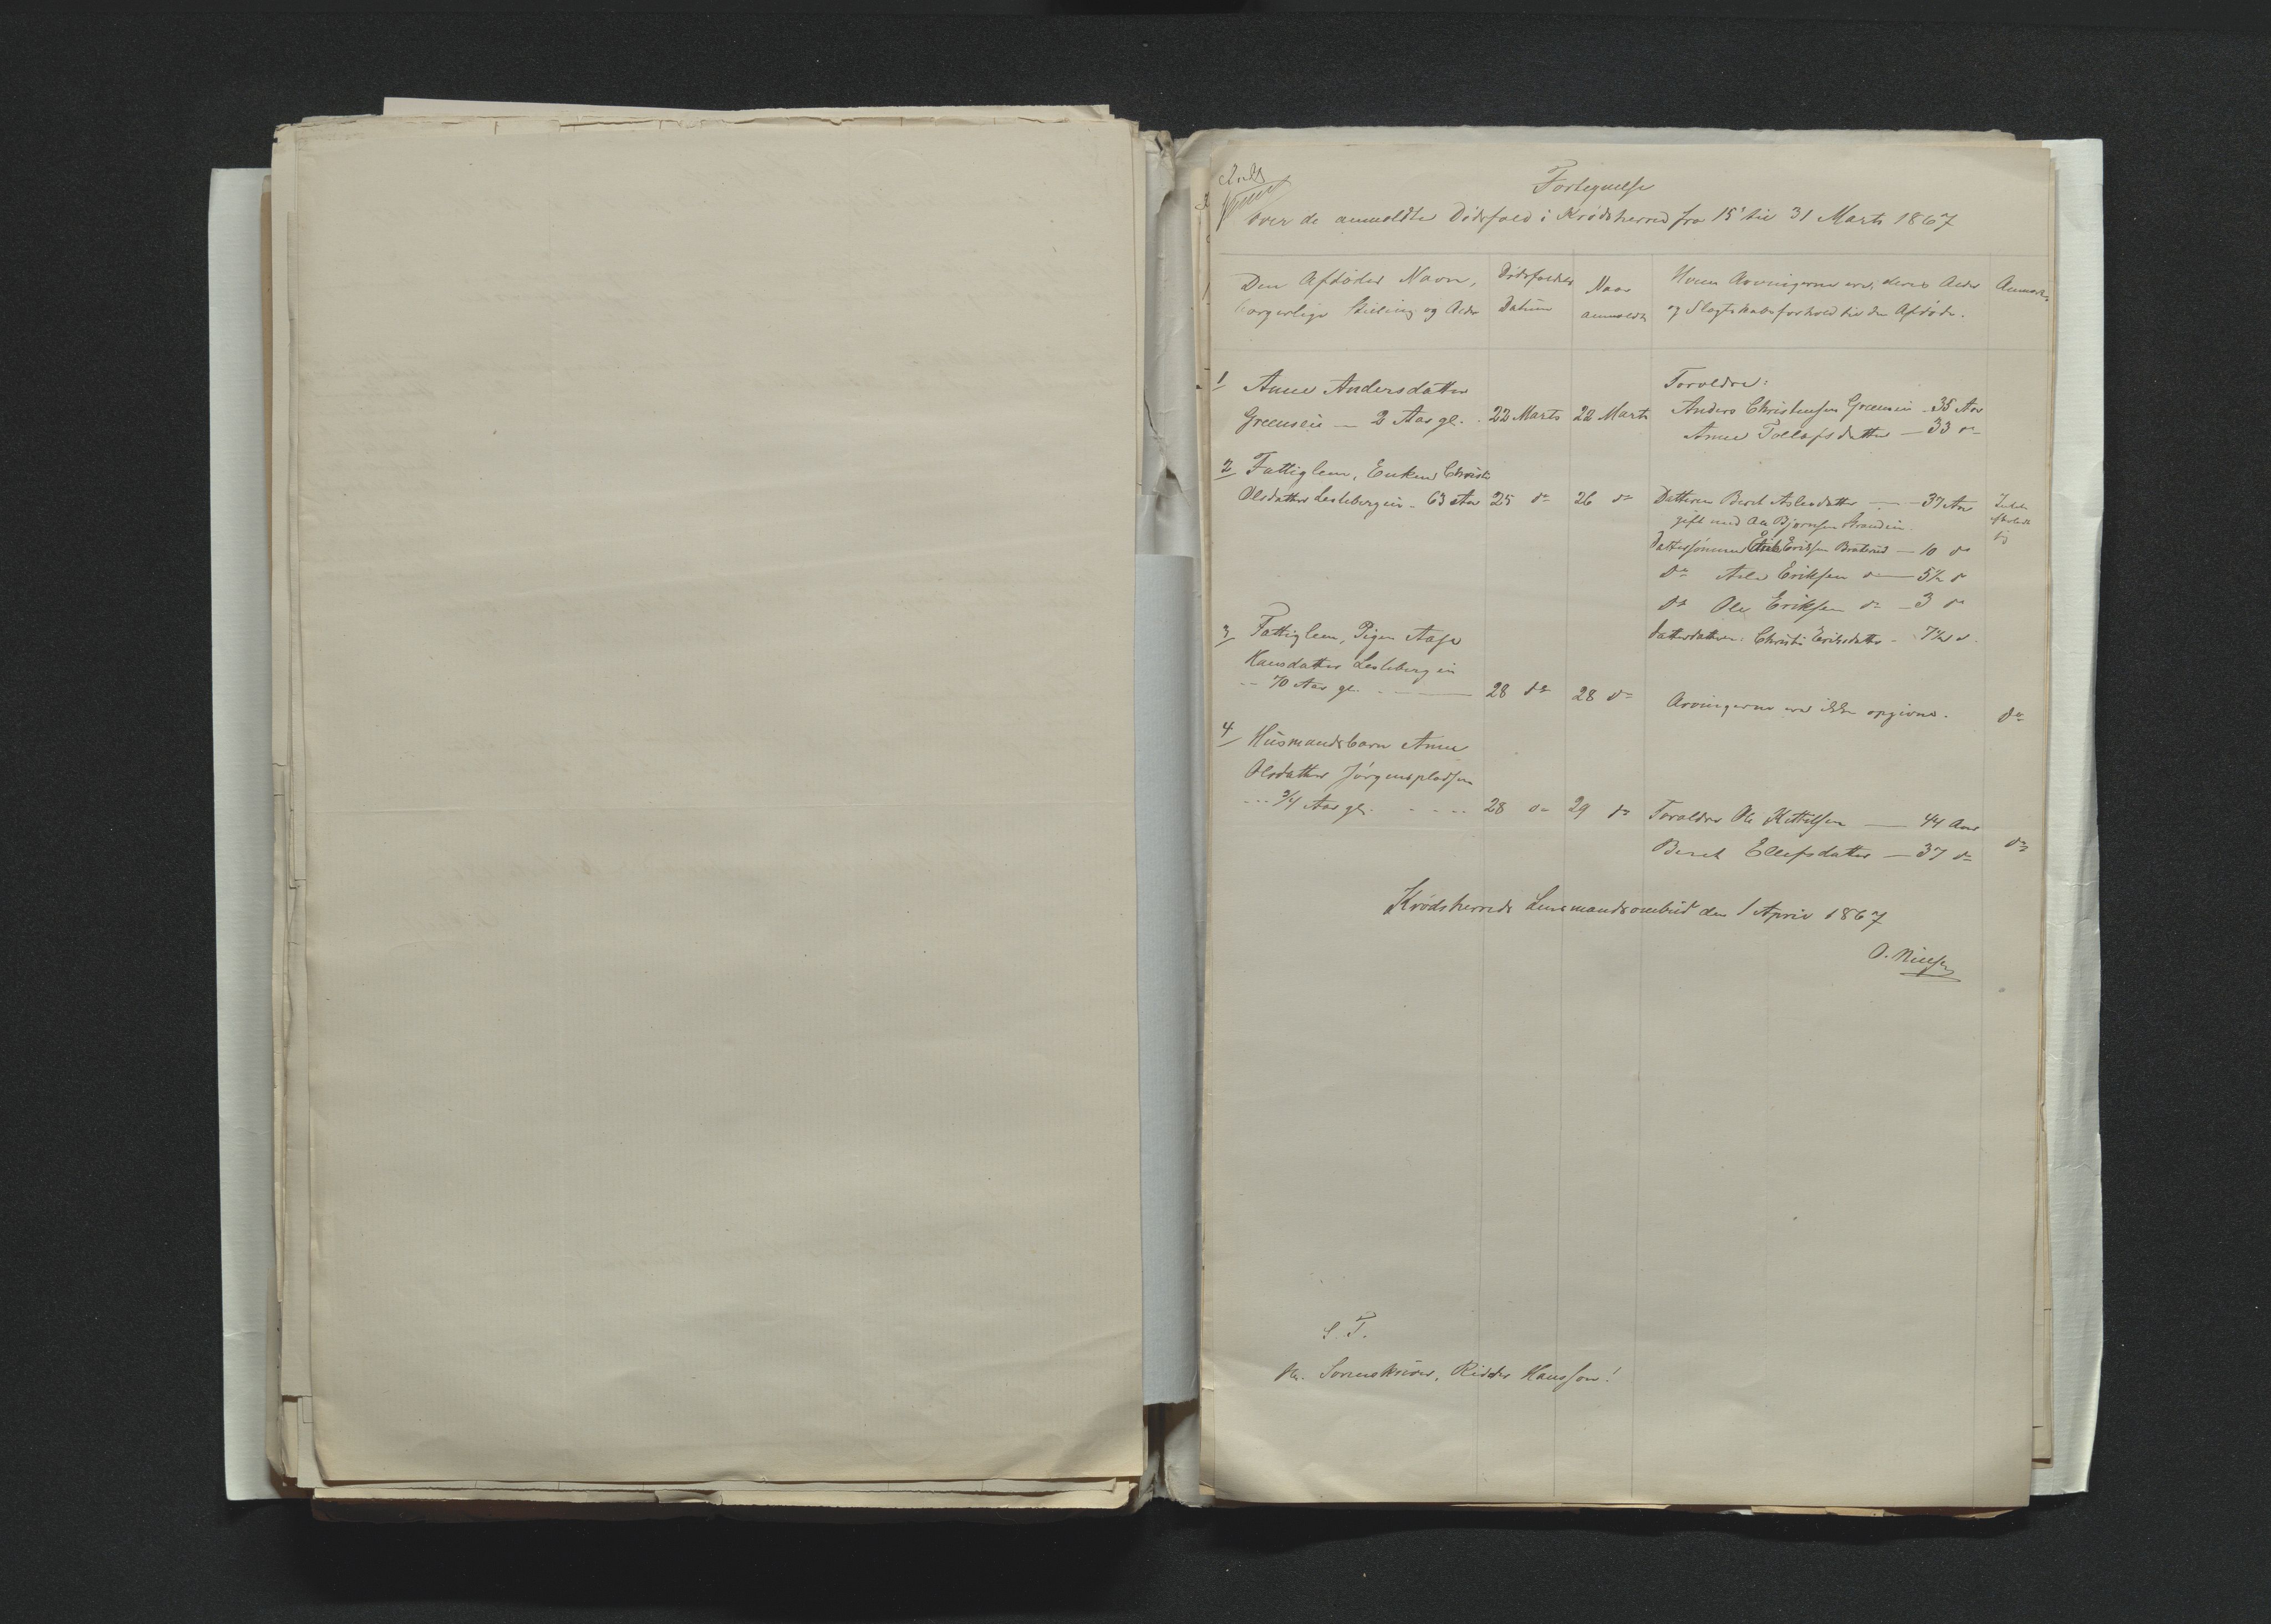 Fortegnelse
over de anmeldte Dödsfald i Krödsherred fra 15 til 31 Marts 1867
Den Afdödes Navn,
borgerlige Stilling og Alder
Dödsfaldets
Datum
Naar
anmeldt
Hvem Arvingerne ere, deres Alder
og Slægtskabsforhold til den Afdöde.
Anmærk.
1 Anne Andersdatter
Greenseie — 2 Aar gl. 22 Marts 22 Marts
Forældre:
Anders Christensen Greenseie 35 Aar
Anne Tollefsdatter — 33 do
2 Fattiglem, Enken Christi
Olsdatter Leslebergeie - 63 Aar 25 do 26 do
Datteren Berit Aslesdatter — 37 Aar
gift med Ole Björnsen Strandeie
Dattersönnen Erik Eriksen Bråterud — 10 do
do Asle Eriksen do — 5½ do
do Ole Eriksen do — 3 do
Datterdatter: Christi Eriksdatter - 7½ do
Intet
efterladt
sig
3 Fattiglem, Pigen Aase
Hansdatter Leslebergeie
— 70 Aar gl. — 28 do 28 do Arvingerne ere ikke opgivne. do
4 Husmandsbarn Anne
Olsdatter Jörgenspladsen
--- 3/4 Aar gl. - - - - 28 do 29 do Forældre Ole Kittilsen — 44 Aar
Berit Ellefsdatter — 37 do do
Krödsherreds Lensmandsombud den 1 April 1867
O. Nielsen
S. T.
Hr. Sorenskriver, Ridder Hansson!